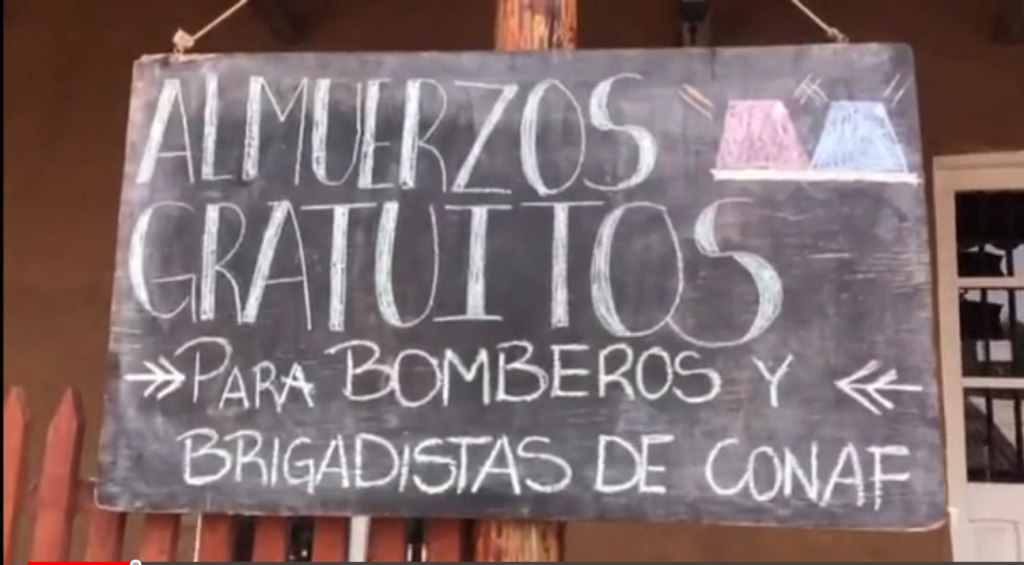 ALMUERZOS
GRATUITOS
PARA BOMBEROS Y
BRIGADISTAS DE CONAF